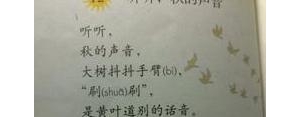 听听，
秋的声音，
大树抖抖手臂(bì)，
“刷(shuā)刷”，
是黄叶道别的话音。